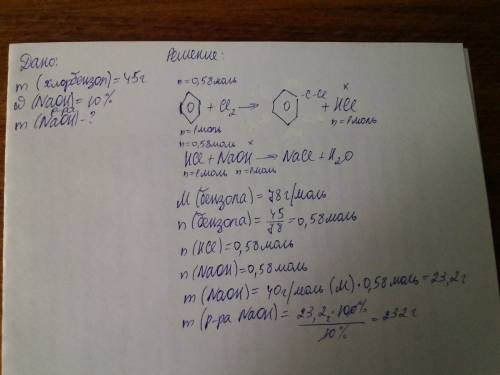 Дано:
m (хлорбензол) = 45г
ω (NaOH) = 10%
m р-ра (NaOH) - ?
Решение:
n = 0,58 моль
+ Cl2 → -C-Cl + HCl x
n = 1 моль n = 1 моль
n = 0,58 моль x
HCl + NaOH → NaCl + H2O
n = 1 моль n = 1 моль
M (бензола) = 78 г/моль
n (бензола) = 45/78 = 0,58 моль
n (HCl) = 0,58 моль
n (NaOH) = 0,58 моль
m (NaOH) = 40 г/моль (M) · 0,58 моль = 23,2 г
m (р-ра NaOH) = 23,2г · 100% / 10% = 232 г